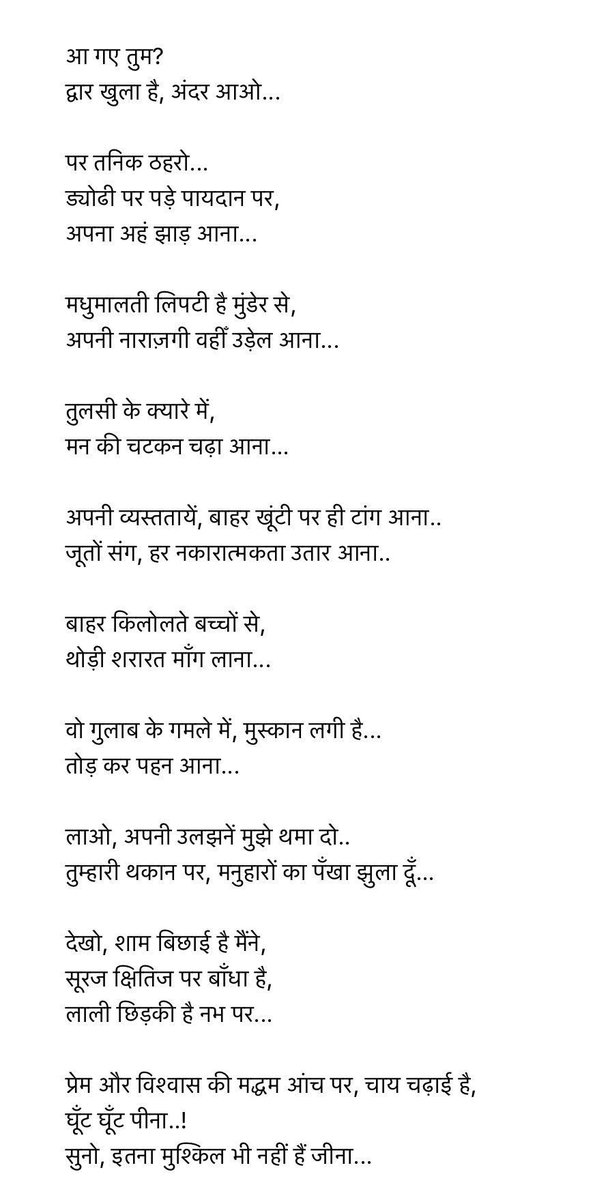 आ गए तुम?
द्वार खुला है, अंदर आओ...
पर तनिक ठहरो...
ड्योढी पर पड़े पायदान पर,
अपना अहं झाड़ आना...
मधुमालती लिपटी है मुंडेर से,
अपनी नाराज़गी वहीँ उड़ेल आना...
तुलसी के क्यारे में,
मन की चटकन चढ़ा आना...
अपनी व्यस्ततायें, बाहर खूंटी पर ही टांग आना..
जूतों संग, हर नकारात्मकता उतार आना..
बाहर किलोलते बच्चों से,
थोड़ी शरारत माँग लाना...
वो गुलाब के गमले में, मुस्कान लगी है...
तोड़ कर पहन आना...
लाओ, अपनी उलझनें मुझे थमा दो..
तुम्हारी थकान पर, मनुहारों का पँखा झुला दूँ...
देखो, शाम बिछाई है मैंने,
सूरज क्षितिज पर बाँधा है,
लाली छिड़की है नभ पर...
प्रेम और विश्वास की मद्धम आंच पर, चाय चढ़ाई है,
घूँट घूँट पीना..!
सुनो, इतना मुश्किल भी नहीं हैं जीना...